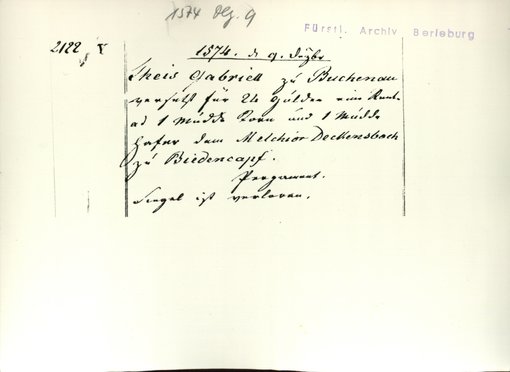 1574 Dez. 9
Fürstl. Archiv Berleburg
2122
1574. d. 9. Dezbr
Theis Gabriell zu Buchenau
versetzt für 24 Gulden eine Rente
ad 1 Müdde Korn und 1 Müdde
Hafer dem Melchior Deckensbach
zu Biedencapf.
Pergament.
Siegel ist verloren.